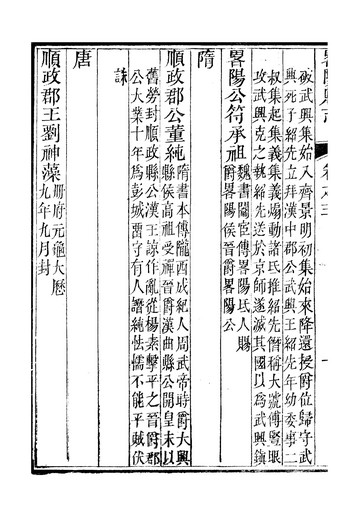 破武興集始入齊景明初集始來降還授爵位歸守武
興死子紹先立拜漢中郡公武興王紹先年幼委事二
叔集起集義集義煽動諸氐推紹先僭稱大號傅豎眼
攻武興克之執紹先送於京師遂滅其國以爲武興鎮
畧陽公符承祖
魏書閹宦傳畧陽氐人賜
爵畧陽侯晉爵畧陽公
隋
順政郡公董純
隋書本傳隴西成紀人周武帝時爵大興
縣侯高祖受禪晉爵漢曲縣公開皇末以
舊勞封順政縣公漢王諒作亂從楊素擊平之晉爵郡
公大業十年爲彭城留守有人譖純怯懦不能平賊伏
誅
唐
順政郡王劉神藻
冊府元龜大歷
九年九月封